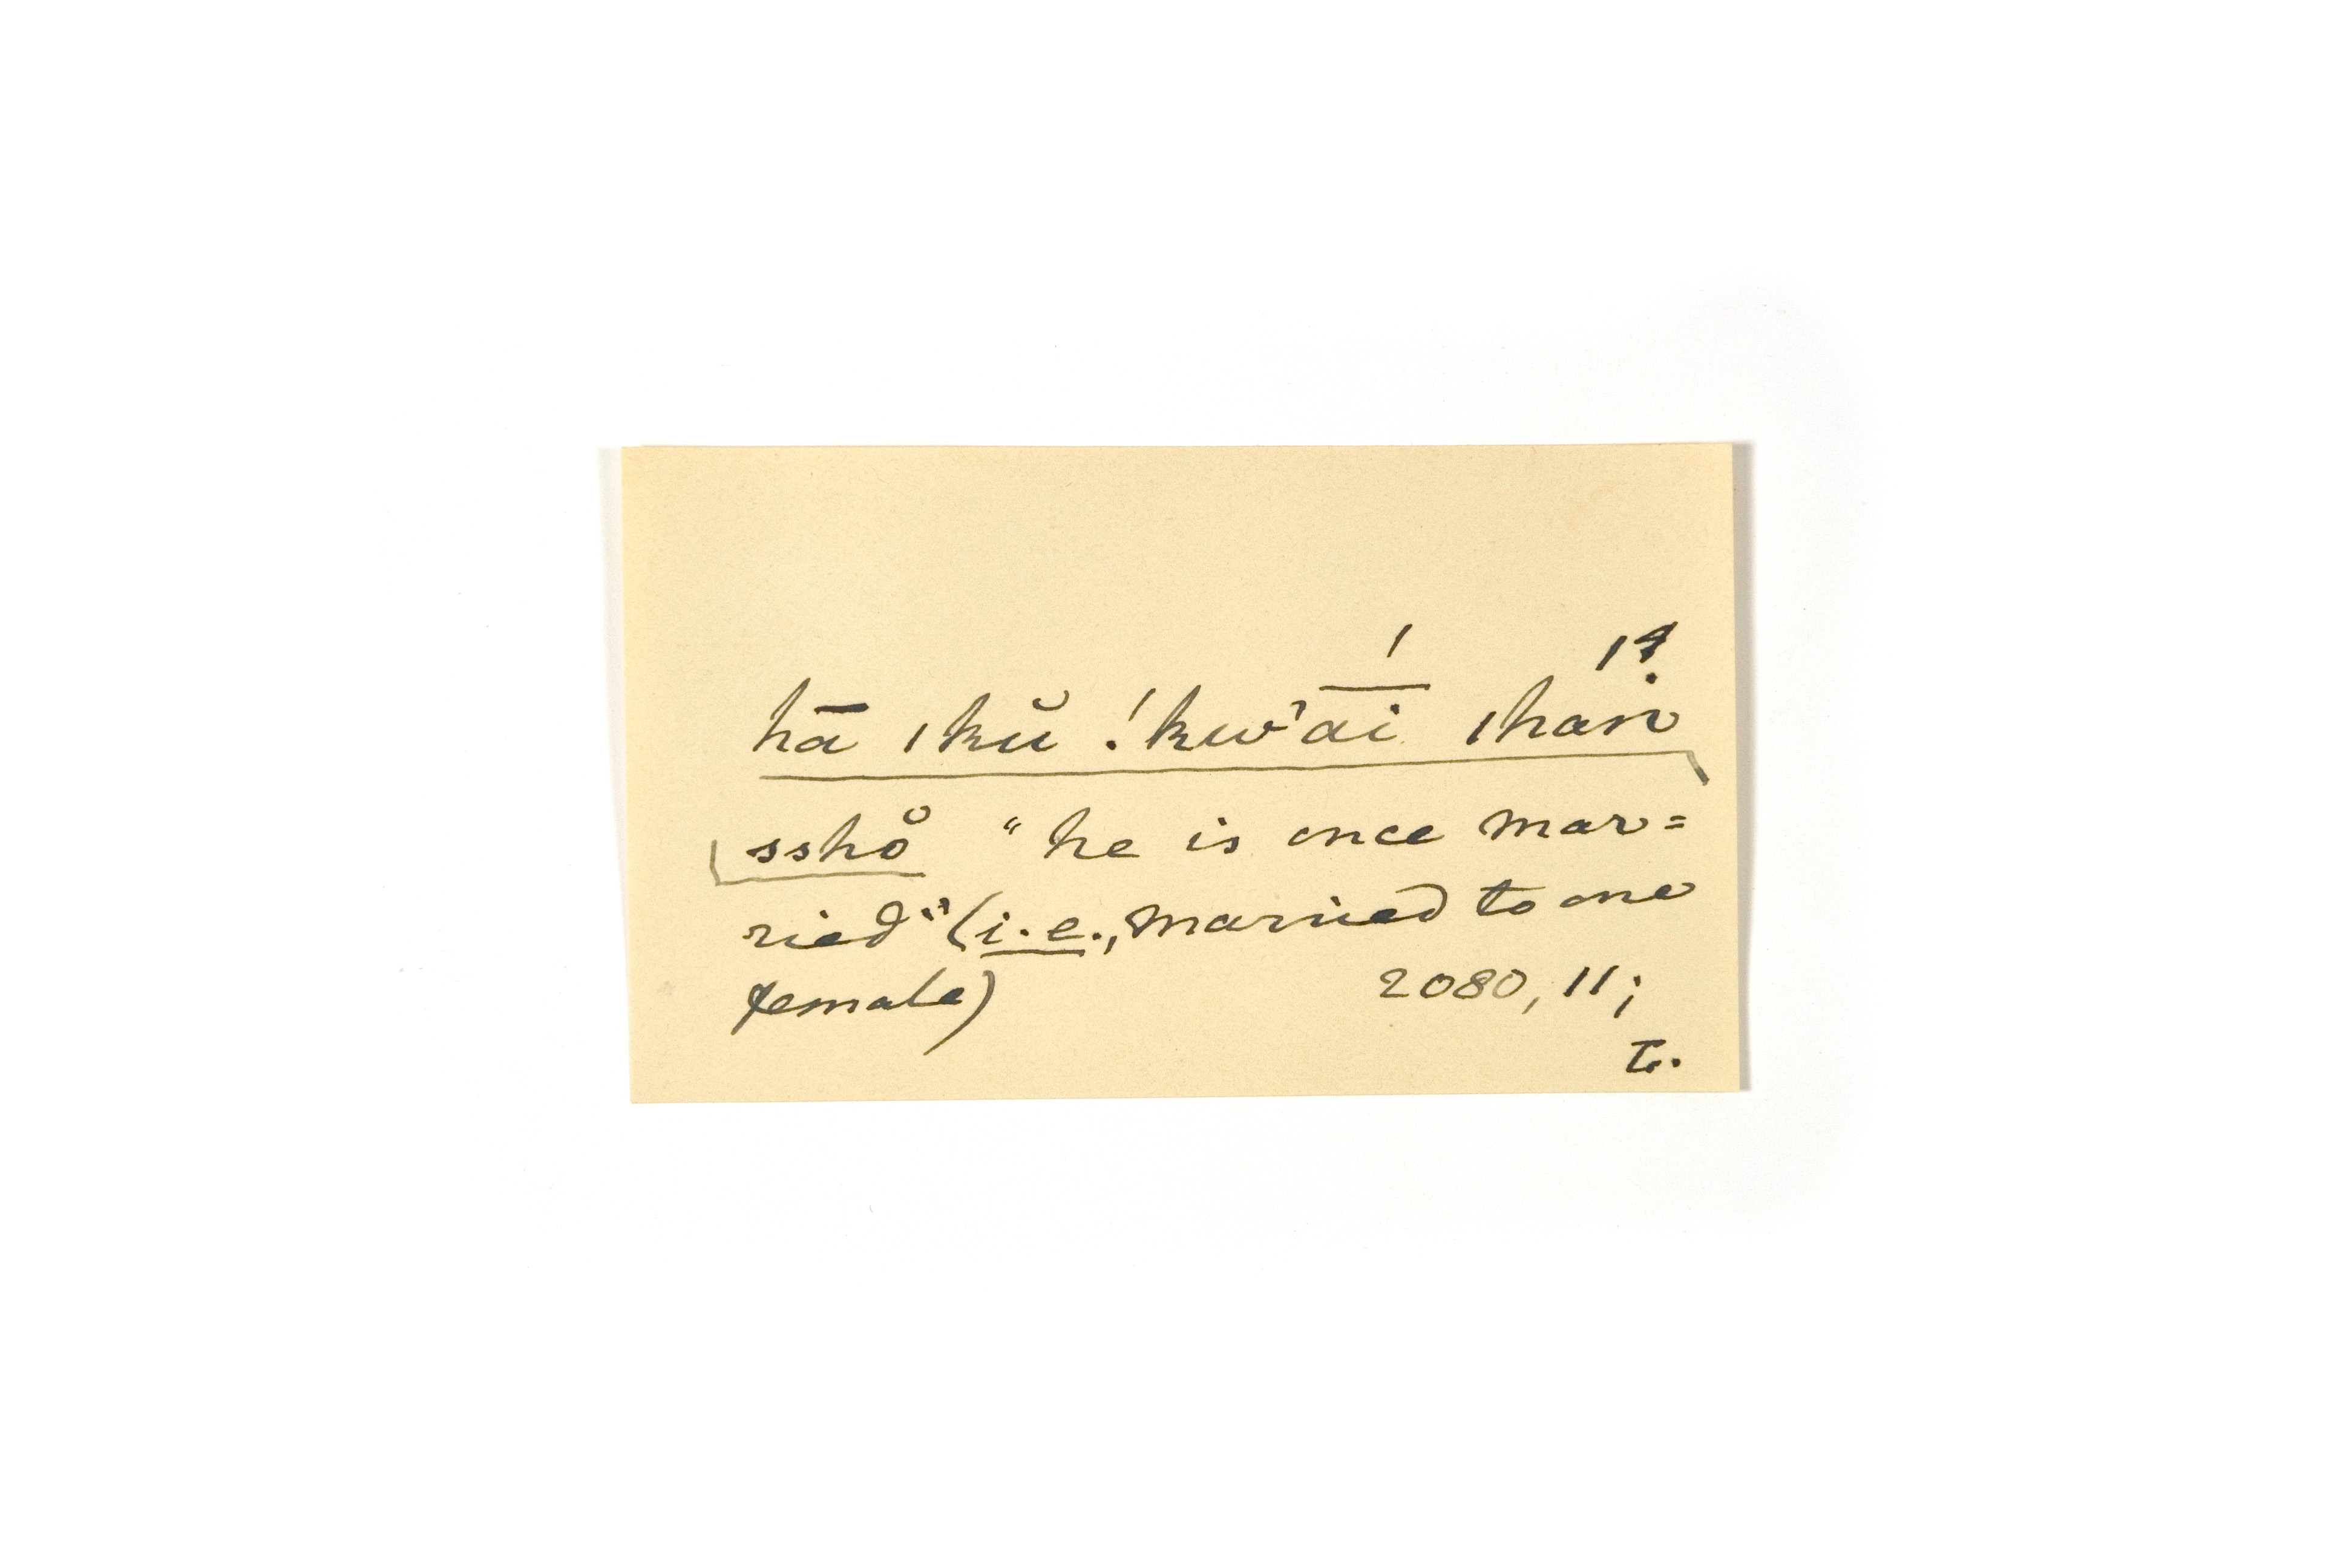 hā ǀkŭ !kw'ā́i ǀhań ?
sshŏ̊ "he is once mar=
ried" (i.e., married to one
female) 2080, 11;
T.